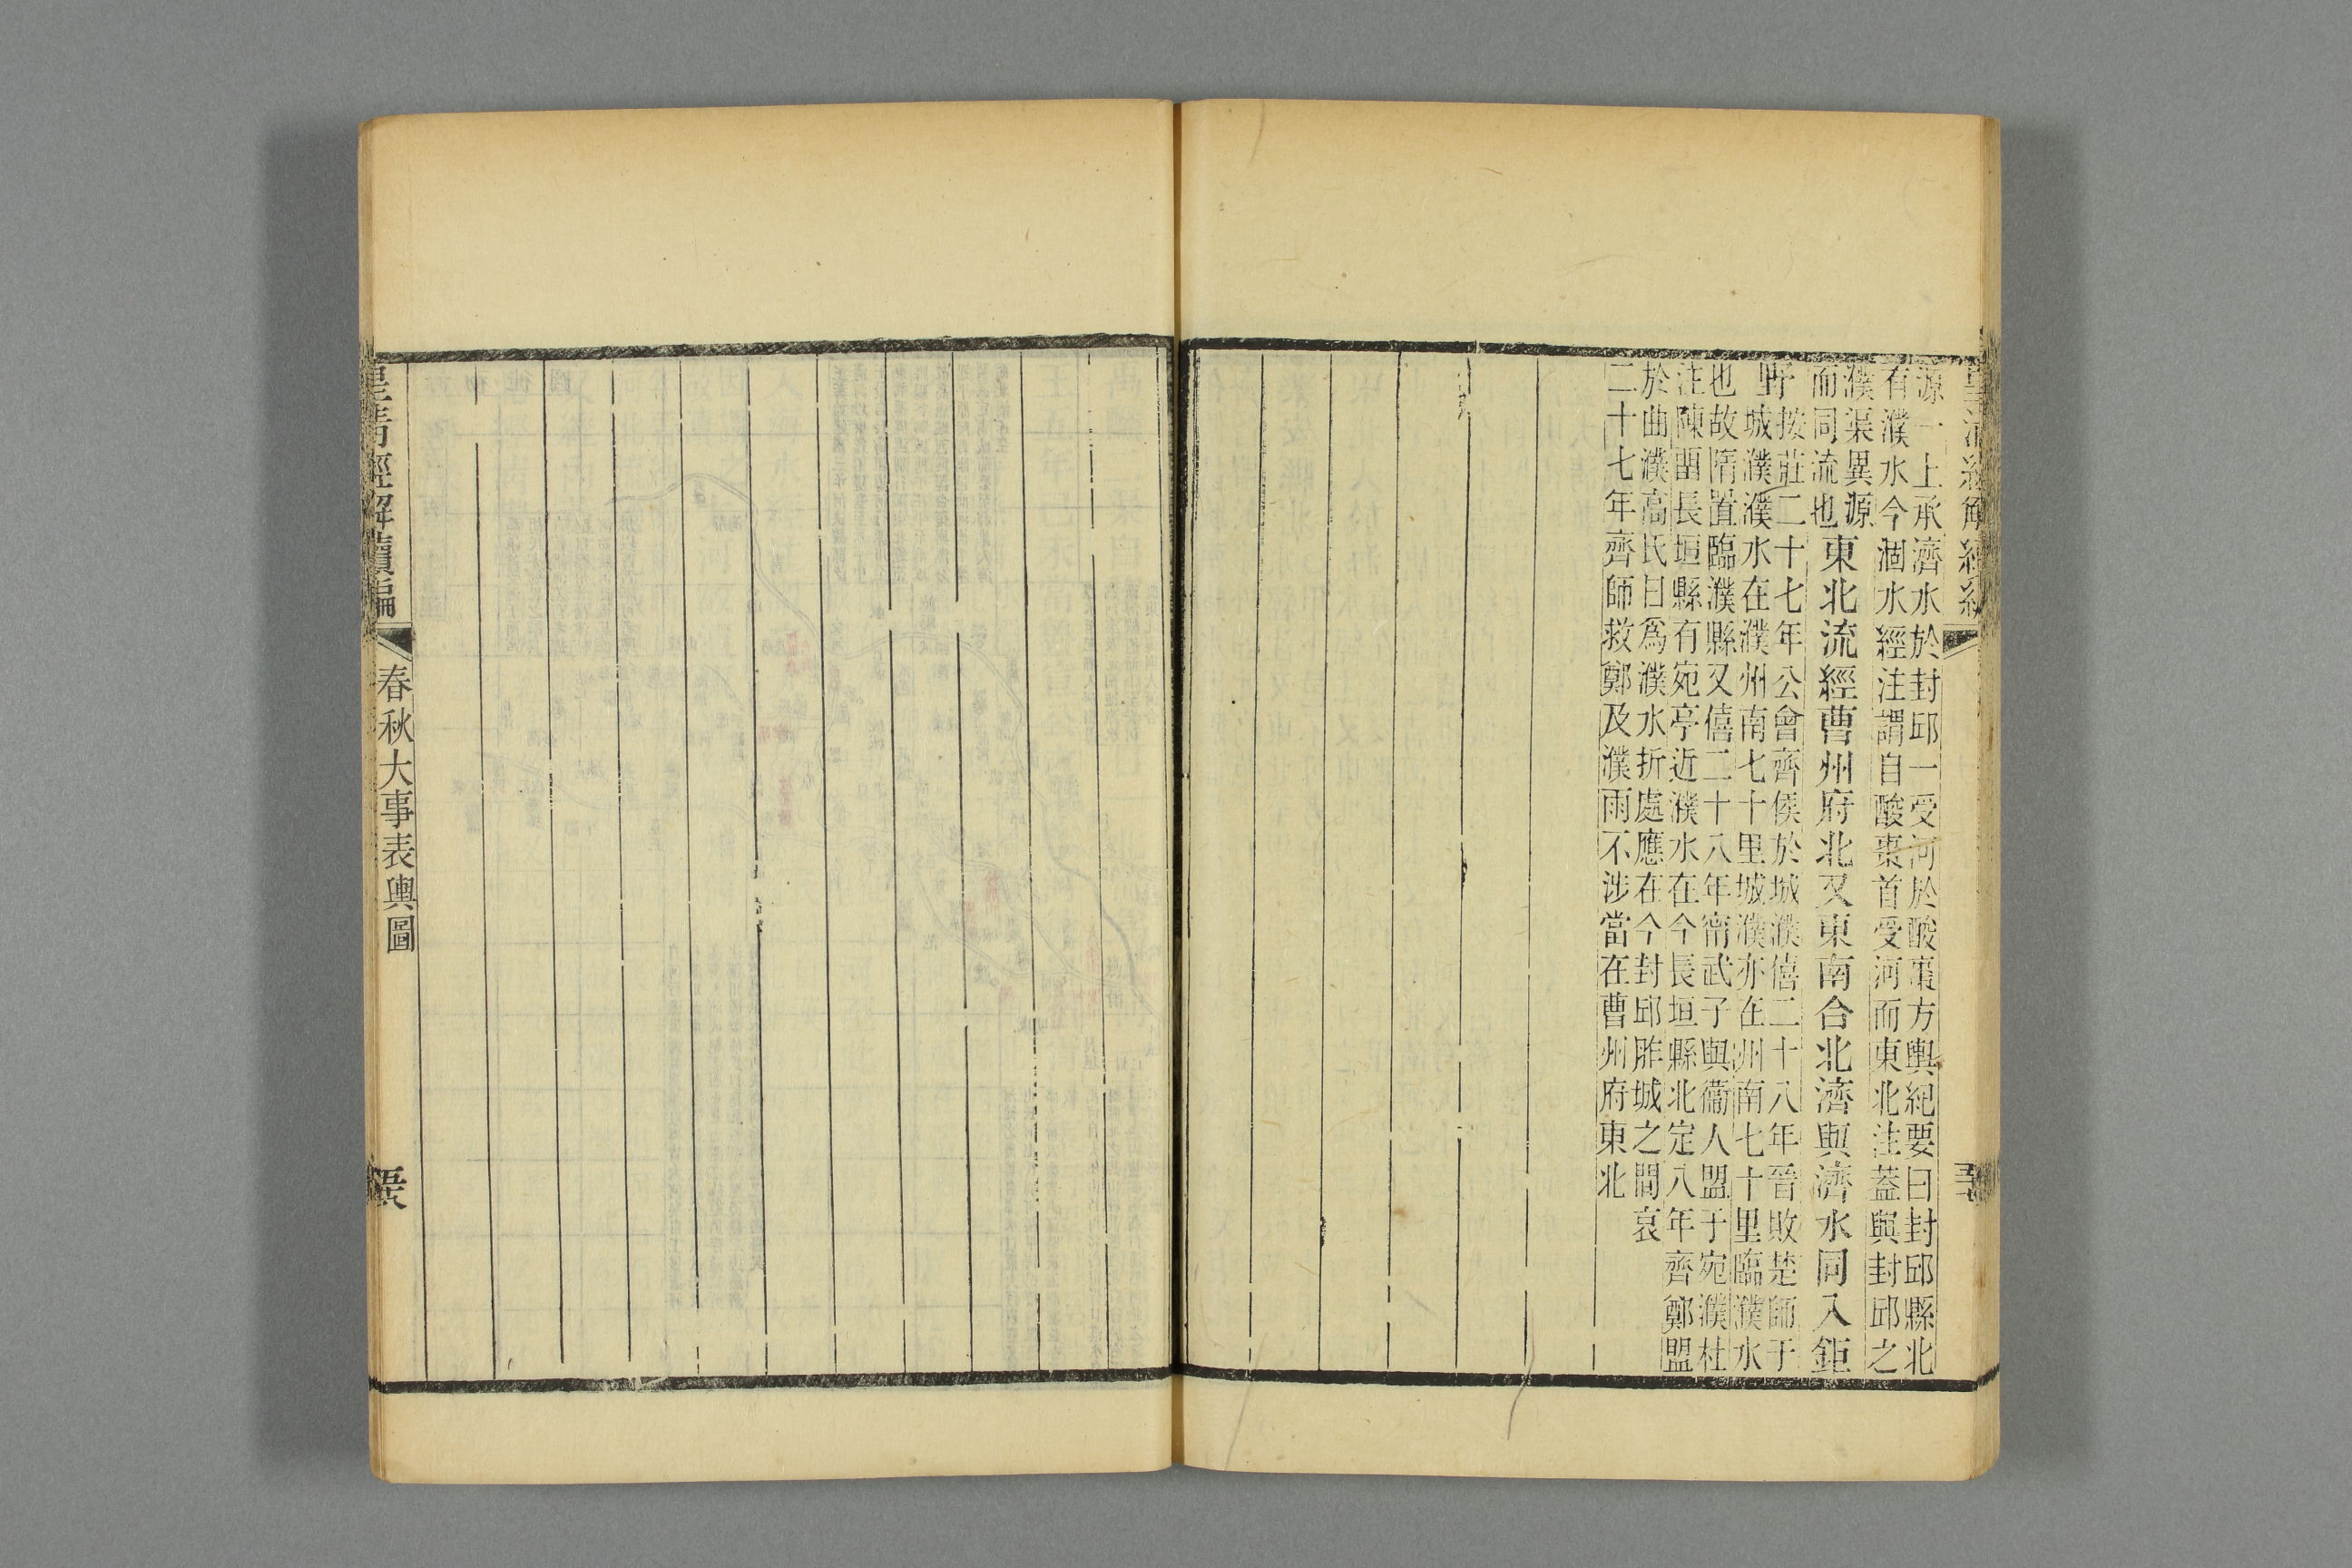 源一上承濟水於封邱一受河於酸棗方輿紀要曰封邱縣北
有濮水今涸水經注謂自酸棗首受河而東北注蓋與封邱之
濮渠異源
而同流也
東北流經曹州府北又東南合北濟與濟水同入鉅
野
按莊二十七年公會齊侯於城濮僖二十八年晉敗楚師于
城濮濮水在濮州南七十里城濮亦在州南七十里臨濮水
也故隋置臨濮縣又僖二十八年甯武子與衞人盟于宛濮杜
注陳畱長垣縣有宛亭近濮水在今長垣縣北定八年齊鄭盟
於曲濮高氏曰爲濮水折處應在今封邱胙城之間哀
二十七年齊師救鄭及濮雨不涉當在曹州府東北
皇清經解續編
春秋大事表輿圖